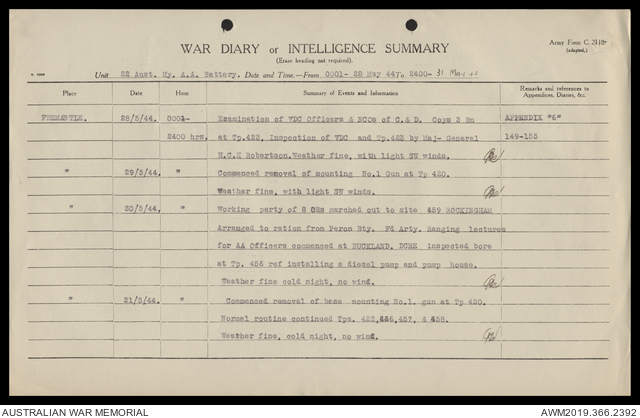 WAR DIARY or INTELLIGENCE SUMMARY
Army Form C. 2118-
(adapted.)
(Erase heading not required).
Unit. 22 Aust. Hy. A.A. Battery. Date and Time.—From 0001- 28 May 44 To 2400- 31 May 44
Place Date Hour Summary of Events and Information Remarks and references to
Appendices, Diaries, &c.
FREMANTLE. 28/5/44. 0001- Examination of VDC Officers & NCOs of C.& D. Coys 3 Bn APPENDIX "6"
2400 hrs. at Tp.423, Inspection of VDC and Tp.423 by Maj- General 149-155
H.C.H Robertson.Weather fine, with light SW winds.
" 29/5/44. " Commenced removal of mounting No.1 Gun at Tp 420.
Weather fine, with light SW winds.
" 30/5/44. " Working party of 8 ORs marched out to site 459 ROCKINGHAM
Arranged to ration from Peron Bty. Fd Arty. Ranging lectures
for AA Officers commenced at BUCKLAND. DCRE inspected bore
at Tp. 456 ref installing a diesel pump and pump house.
Weather fine cold night, no wind.
" 31/5/44. " Commenced removal of base mounting No.1. gun at Tp 420.
Normal routine continued Tps. 423,456,457, & 458.
Weather fine, cold night, no wind.
AUSTRALIAN WAR MEMORIAL
AWM2019.366.2392